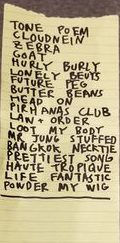 TONE POEM
CLOUDNEIN
ZEBRA
GOAT
HURLY BURLY
LONELY BEUTS
FUTURE PEG
BUTTER BEANS
HEAD ON
PIRHANAS CLUB
LAW + ORDER
LOOT MY BODY
MR JUNG STUFFED
BANGKOK NECKTIE
PRETTIEST SONG
HAUTE TROPIQUE
LIFE FANTASTIC
POWDER MY WIG